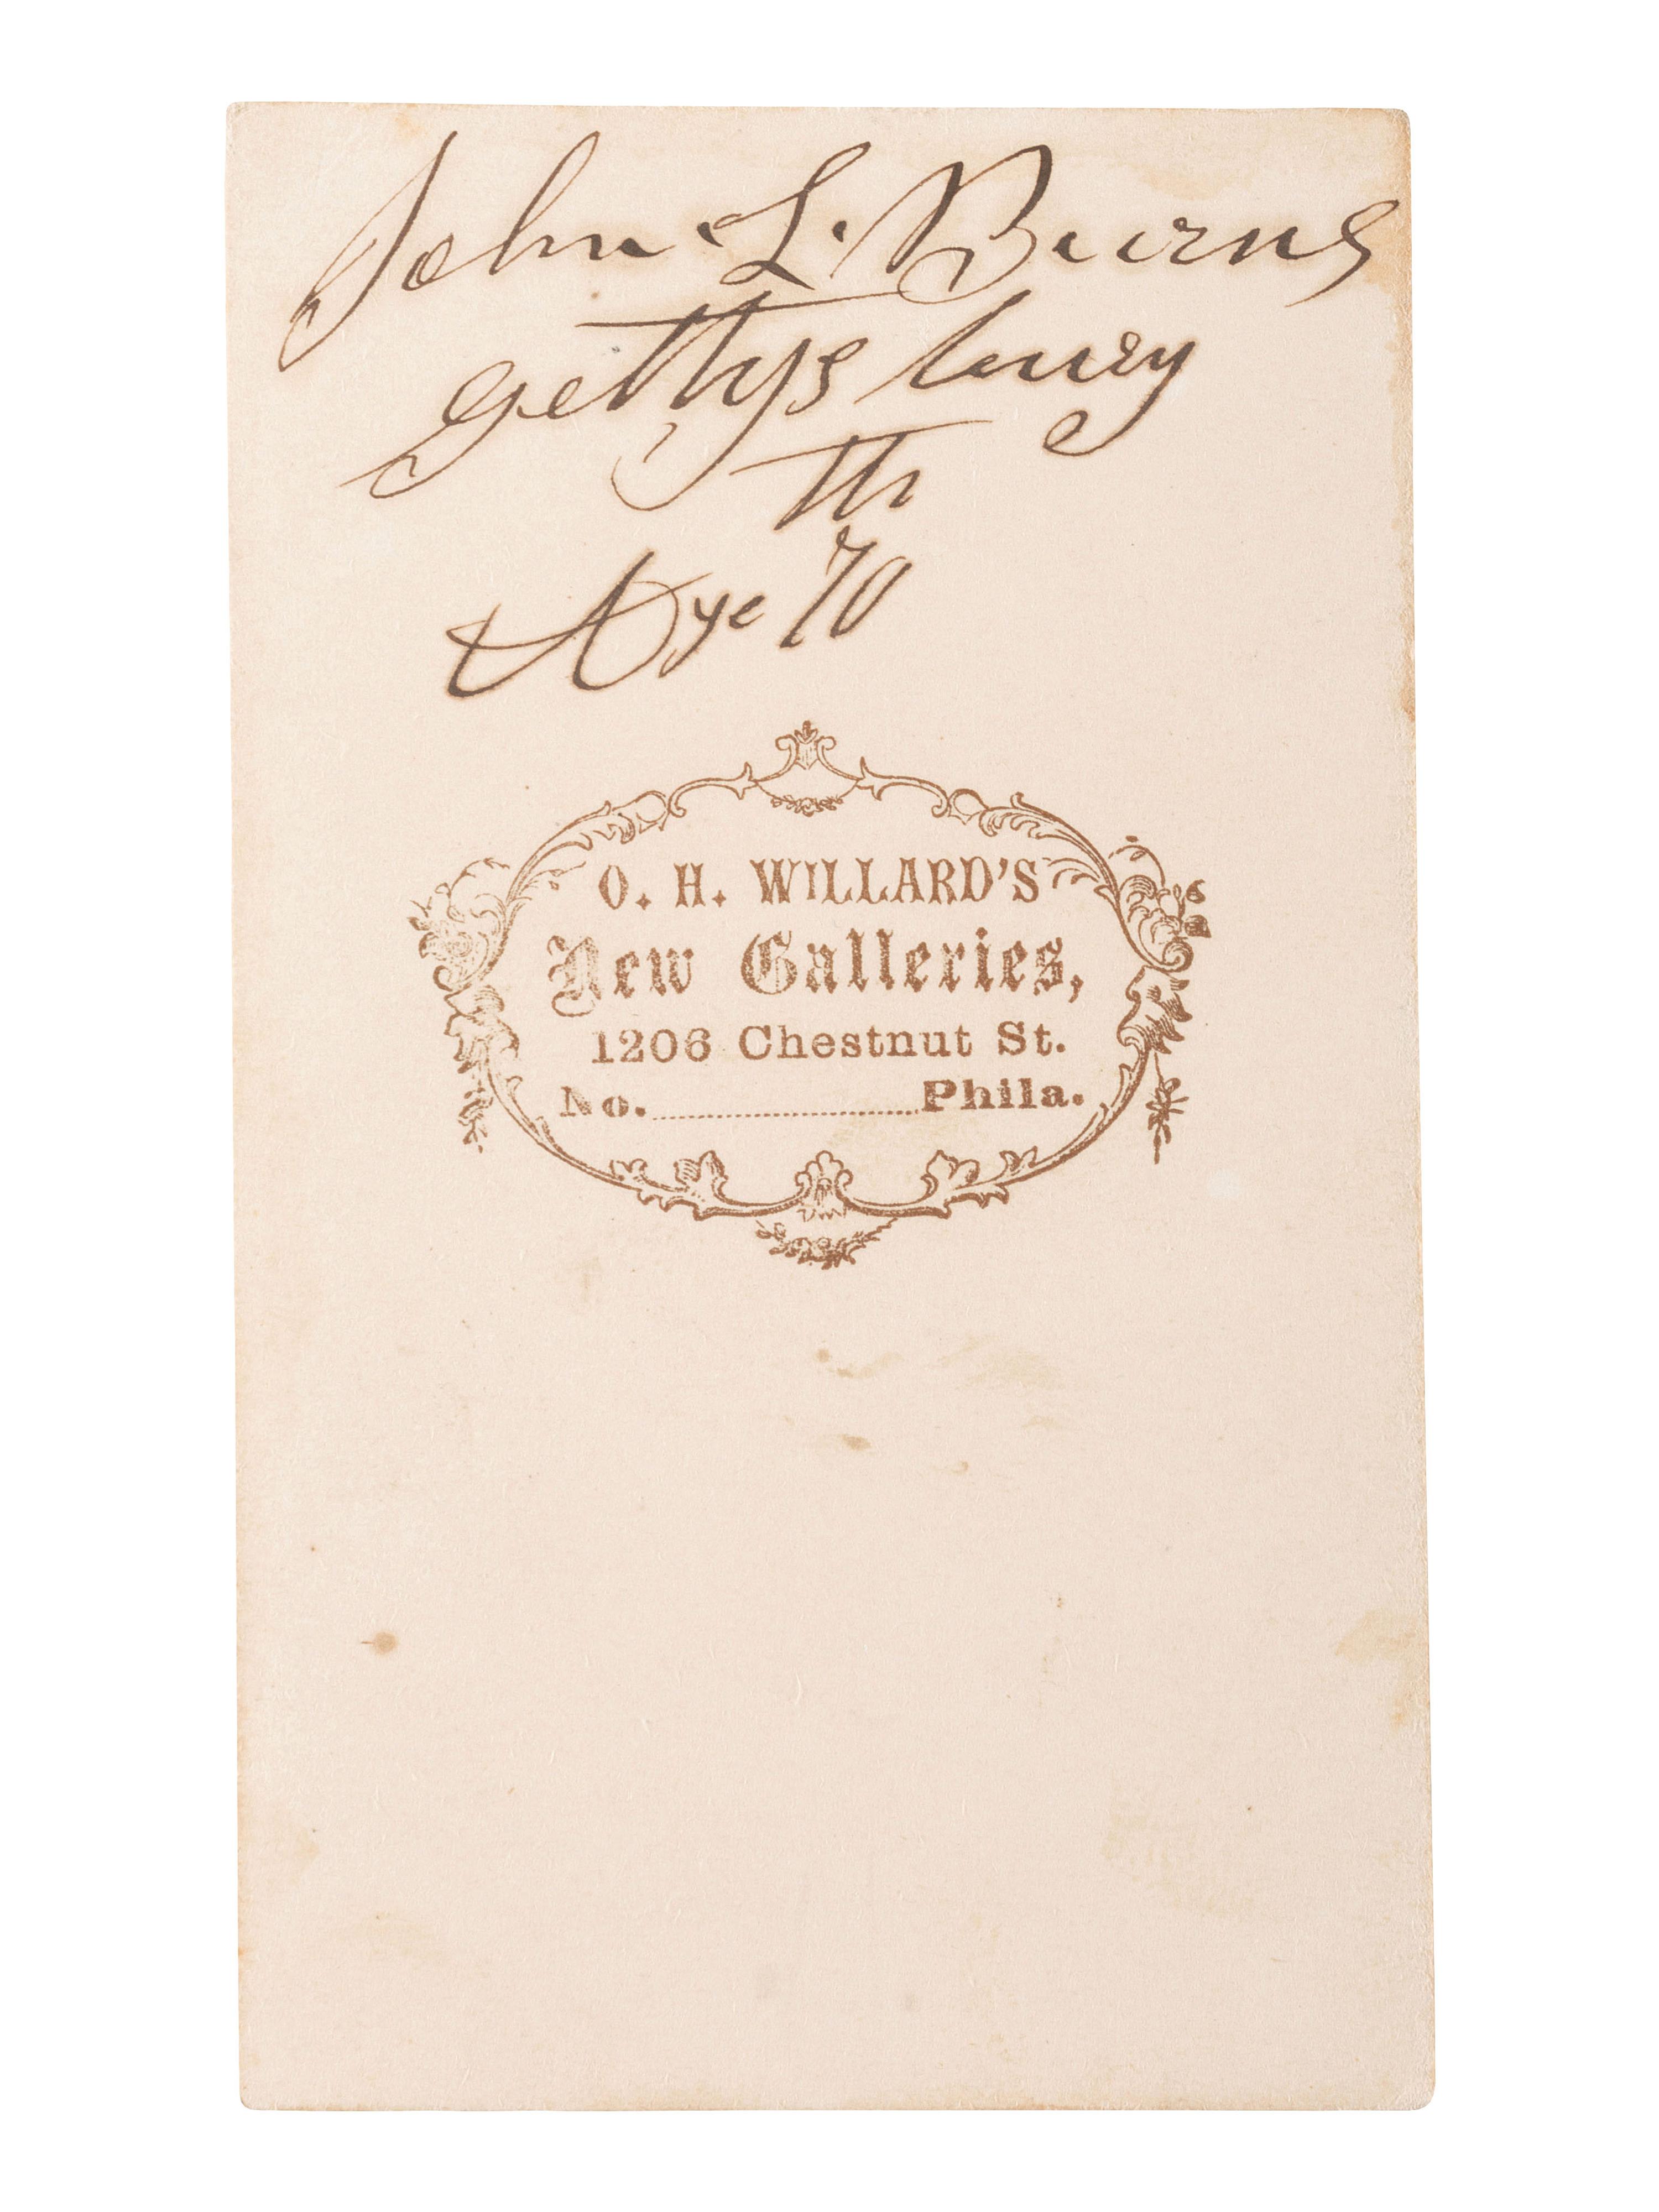 John. L. Burns
gettysburg
Th
Age 70
O. H. WILLARD'S
New Galleries,
1206 Chestnut St.
No. Phila.